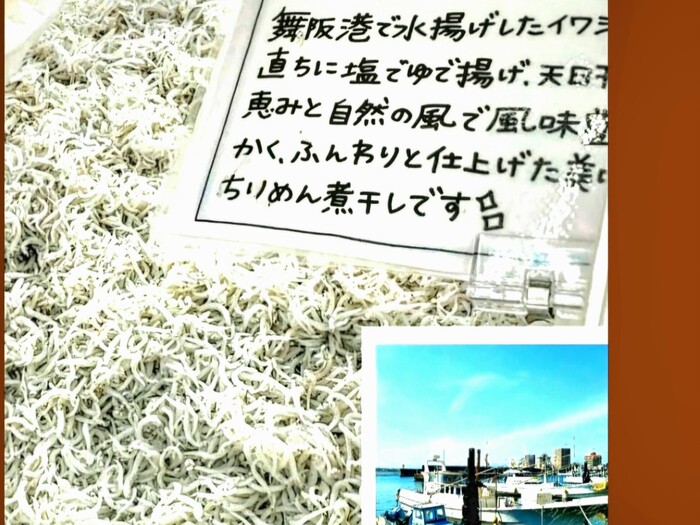 舞阪港で水揚げしたイワシ
直ちに塩でゆで揚げ、天日干
恵みと自然の風で風味豊
かく、ふんわりと仕上げた美味
ちりめん煮干しです